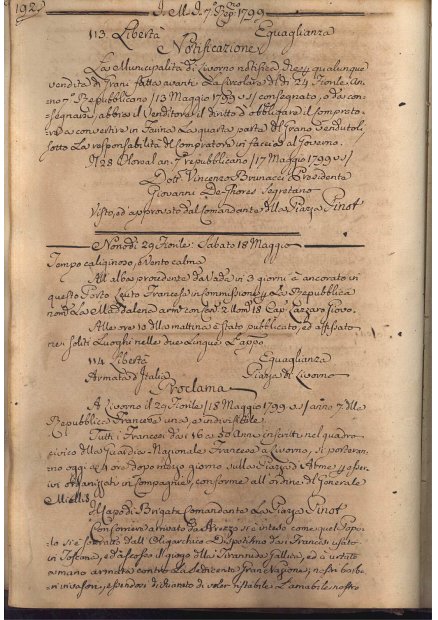 192. I. M. I. 7.º Rep.no 1799
113 Libertà Eguaglianza
Notificazione
La Municipalità di Livorno notifica
vendita di Grani fatta avanti La Circolare di di 24 Fiorile An
no 7º Repubblicano /13 Maggio 1799
il Venditore il diritto d'obbligare il Comprato
re a convertire in Farina La quarta parte del Grano vendutoli,
sotto La responsabilità del Compratore in faccia al Governo.
Li 28 Floreal an. 7 repubblicano /17 Maggio 1799
Dott. Vincenzo Brunacci Presidente
Giovanni De Ghores Segretario
Visto, ed approvato dal Comandante della Piazza Pinot
Nonodì 29 Fiorile: Sabato 18 Maggio
Tempo caliginoso, e vento calma
All'alba procedente da in 3 giorni è ancorato in
questo Porto Leuto Francese in commissione La Repubblica
La Madalena Cap. Lazzaro
Alle ore 10 della mattina è stato pubblicato, ed affissato
nei soliti Luoghi nelle due Lingue L'appo
114 Libertà Eguaglianza
Armata d'Italia Piazza di Livorno
Proclama
A Livorno il 29 Fiorile /18 Maggio 1799 anno 7. della
Repubblica Francese una, e indivisibile
Tutti i Francesi dai 16 a 50 Anni inscritti nel quadro
civico della Guardia Nazionale Francese a Livorno, si porteran
no oggi a 4 ore dopo mezzo giorno sulla Piazza d'Arme
organizzati in Compagnie, conforme all'ordine del Generale
Miollis.
Il Capo di Brigata Comandante La Piazza Pinot
Con Corriere arrivato da Arezzo si è inteso come quel Popo
lo si è dall'Oligarchico Dispotismo dai Francesi usato
in Toscana, ed ha scosso il giogo della Tirannide Gallica, ed è
a mano armata contro La sedicente Gran Nazione, nostri barba
ri invasori, di voler ristabilire L'amabile nostro